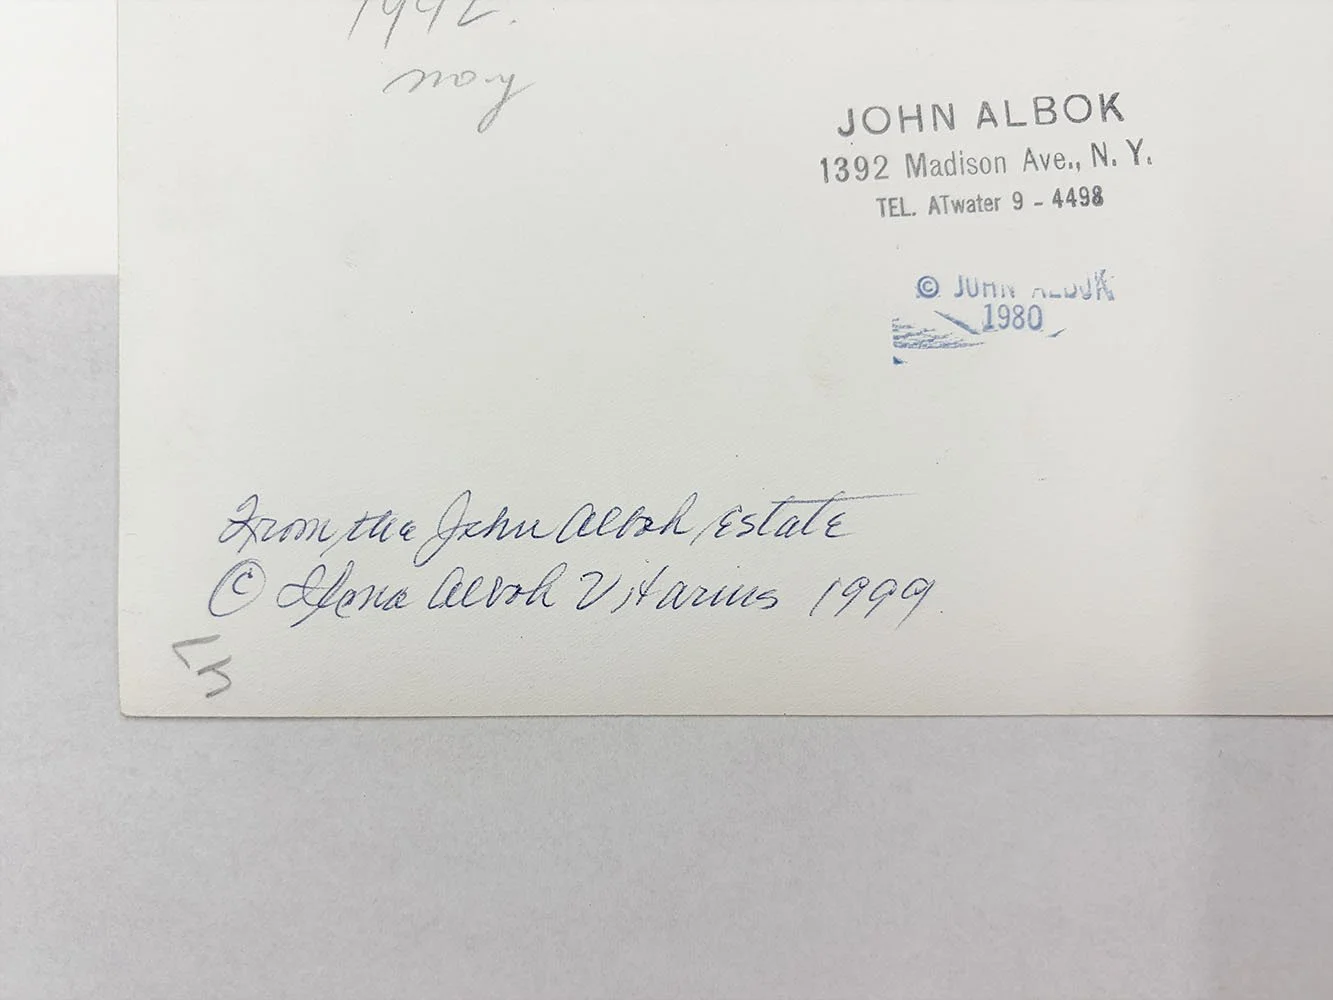 1942.
JOHN ALBOK
1392 Madison Ave., N. Y.
TEL. ATwater 9 - 4498
© JOHN ALBOK
1980
From the John Albok Estate
© Ilona Albok Vitarius 1999